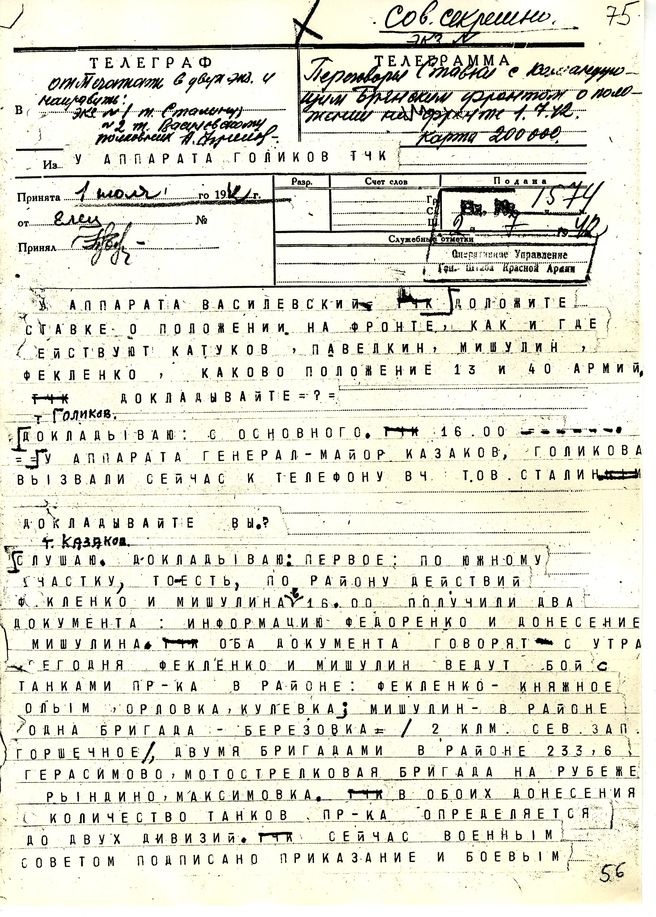 Сов. секретно. 75
экз N
ТЕЛЕГРАФ ТЕЛЕГРАММА
отпечатать в двух экз. и
направить:
экз №1 т. Сталину
№2 т. Василевскому
Переговоры Ставки с командую-
щим Брянским фронтом о поло-
жении на фронте 1.7.42.
Карта 200000.
В
Из У АППАРАТА ГОЛИКОВ ТЧК
Разр. Счет слов Подана
Принята 1 июля го 1942 г.
от Елец №
Принял
1574
2 7 1942
Служебные отметки
Оперативное Управление
Ген. Штаба Красной Армии
У АППАРАТА ВАСИЛЕВСКИЙ ТЧК ДОЛОЖИТЕ
СТАВКЕ О ПОЛОЖЕНИИ НА ФРОНТЕ, КАК И ГДЕ
ЕЙСТВУЮТ КАТУКОВ , ПАВЕЛКИН, МИШУЛИН ,
ФЕКЛЕНКО , КАКОВО ПОЛОЖЕНИЕ 13 И 40 АРМИЙ.
ТЧК ДОКЛАДЫВАЙТЕ=?=
т Голиков.
ДОКЛАДЫВАЮ: С ОСНОВНОГО. ТЧК 16.00
==У АППАРАТА ГЕНЕРАЛ-МАЙОР КАЗАКОВ, ГОЛИКОВА
ВЫЗВАЛИ СЕЙЧАС К ТЕЛЕФОНУ ВЧ ТОВ. СТАЛИН
ДОКЛАДЫВАЙТЕ ВЫ.?
т. Казаков.
СЛУШАЮ. ДОКЛАДЫВАЮ: ПЕРВОЕ: ПО ЮЖНОМУ
УЧАСТКУ, ТОЕСТЬ, ПО РАЙОНУ ДЕЙСТВИЙ
Ф.КЛЕНКО И МИШУЛИНА в 16.00 ПОЛУЧИЛИ ДВА
ДОКУМЕНТА : ИНФОРМАЦИЮ ФЕДОРЕНКО И ДОНЕСЕНИЕ
МИШУЛИНА. ТЧК ОБА ДОКУМЕНТА ГОВОРЯТ - С УТРА
СЕГОДНЯ ФЕКЛЕНКО И МИШУЛИН ВЕДУТ БОЙ С
ТАНКАМИ ПР-КА В РАЙОНЕ: ФЕКЛЕНКО- КНЯЖНОЕ
ОЛЫМ ,ОРЛОВКА,КУЛЕВКА; МИШУЛИН- В РАЙОНЕ
ОДНА БРИГАДА - БЕРЕЗОВКА= / 2 КЛМ. СЕВ.ЗАП.
ГОРШЕЧНОЕ/, ДВУМЯ БРИГАДАМИ В РАЙОНЕ 233,6
ГЕРАСИМОВО,МОТОСТРЕЛКОВАЯ БРИГАДА НА РУБЕЖЕ
РЫНДИНО,МАКСИМОВКА. ТЧК В ОБОИХ ДОНЕСЕНИЯ
КОЛИЧЕСТВО ТАНКОВ ПР-КА ОПРЕДЕЛЯЕТСЯ
ДО ДВУХ ДИВИЗИЙ. ТЧК СЕЙЧАС ВОЕННЫМ
СОВЕТОМ ПОДПИСАНО ПРИКАЗАНИЕ И БОЕВЫМ
56